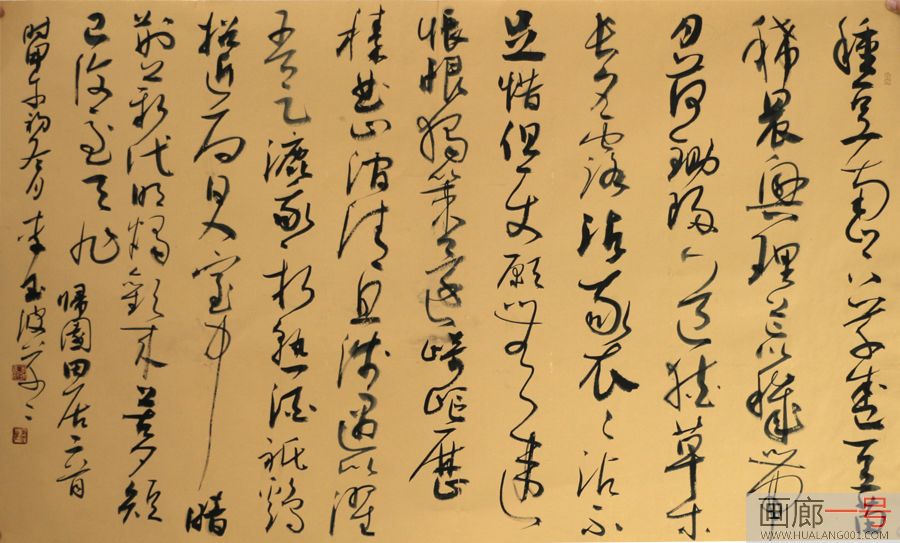 種豆南山下草盛豆苗
稀晨興理荒穢帶
月荷鋤歸道狹草木
長夕露沾我衣々沾不
足惜但使願無違
悵恨獨策還崎嶇歷
榛曲山澗清且淺遇以濯
吾足漉我新熟酒祇鷄
招近局日入室中暗
荊薪代明燭歡來苦夕短
已復至天旭
歸園田居二首
甲午初冬月李玉波
画廊一号
WWW.HUALANG001.COM